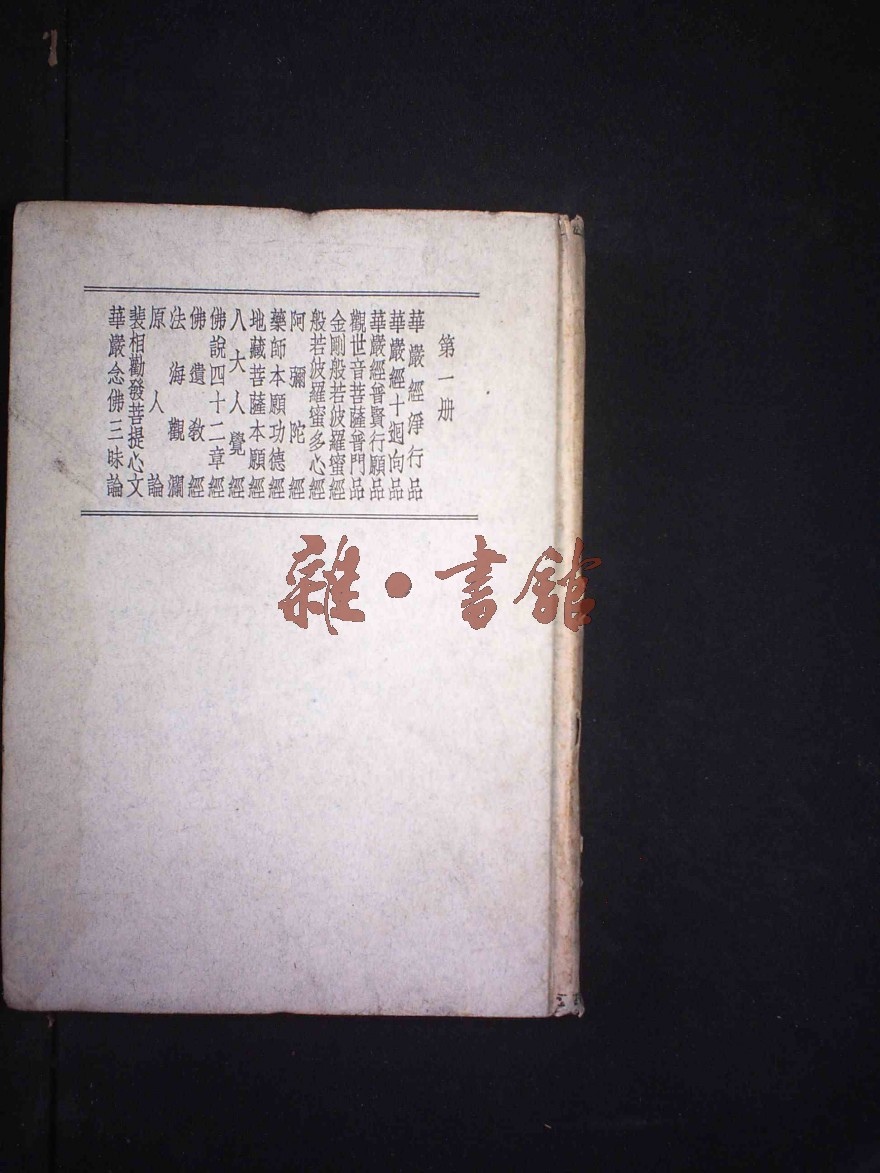 第一册
華嚴經淨行品
華嚴經十迴向品
華嚴經普賢行願品
觀世音菩薩普門品
金剛般若波羅蜜經
般若波羅蜜多心經
阿彌陀經
藥師本願功德經
地藏菩薩本願經
八大人覺經
佛說四十二章經
佛遺教經
法海觀瀾
原人論
裴相勸發菩提心文
華嚴念佛三昧論
雜·書館